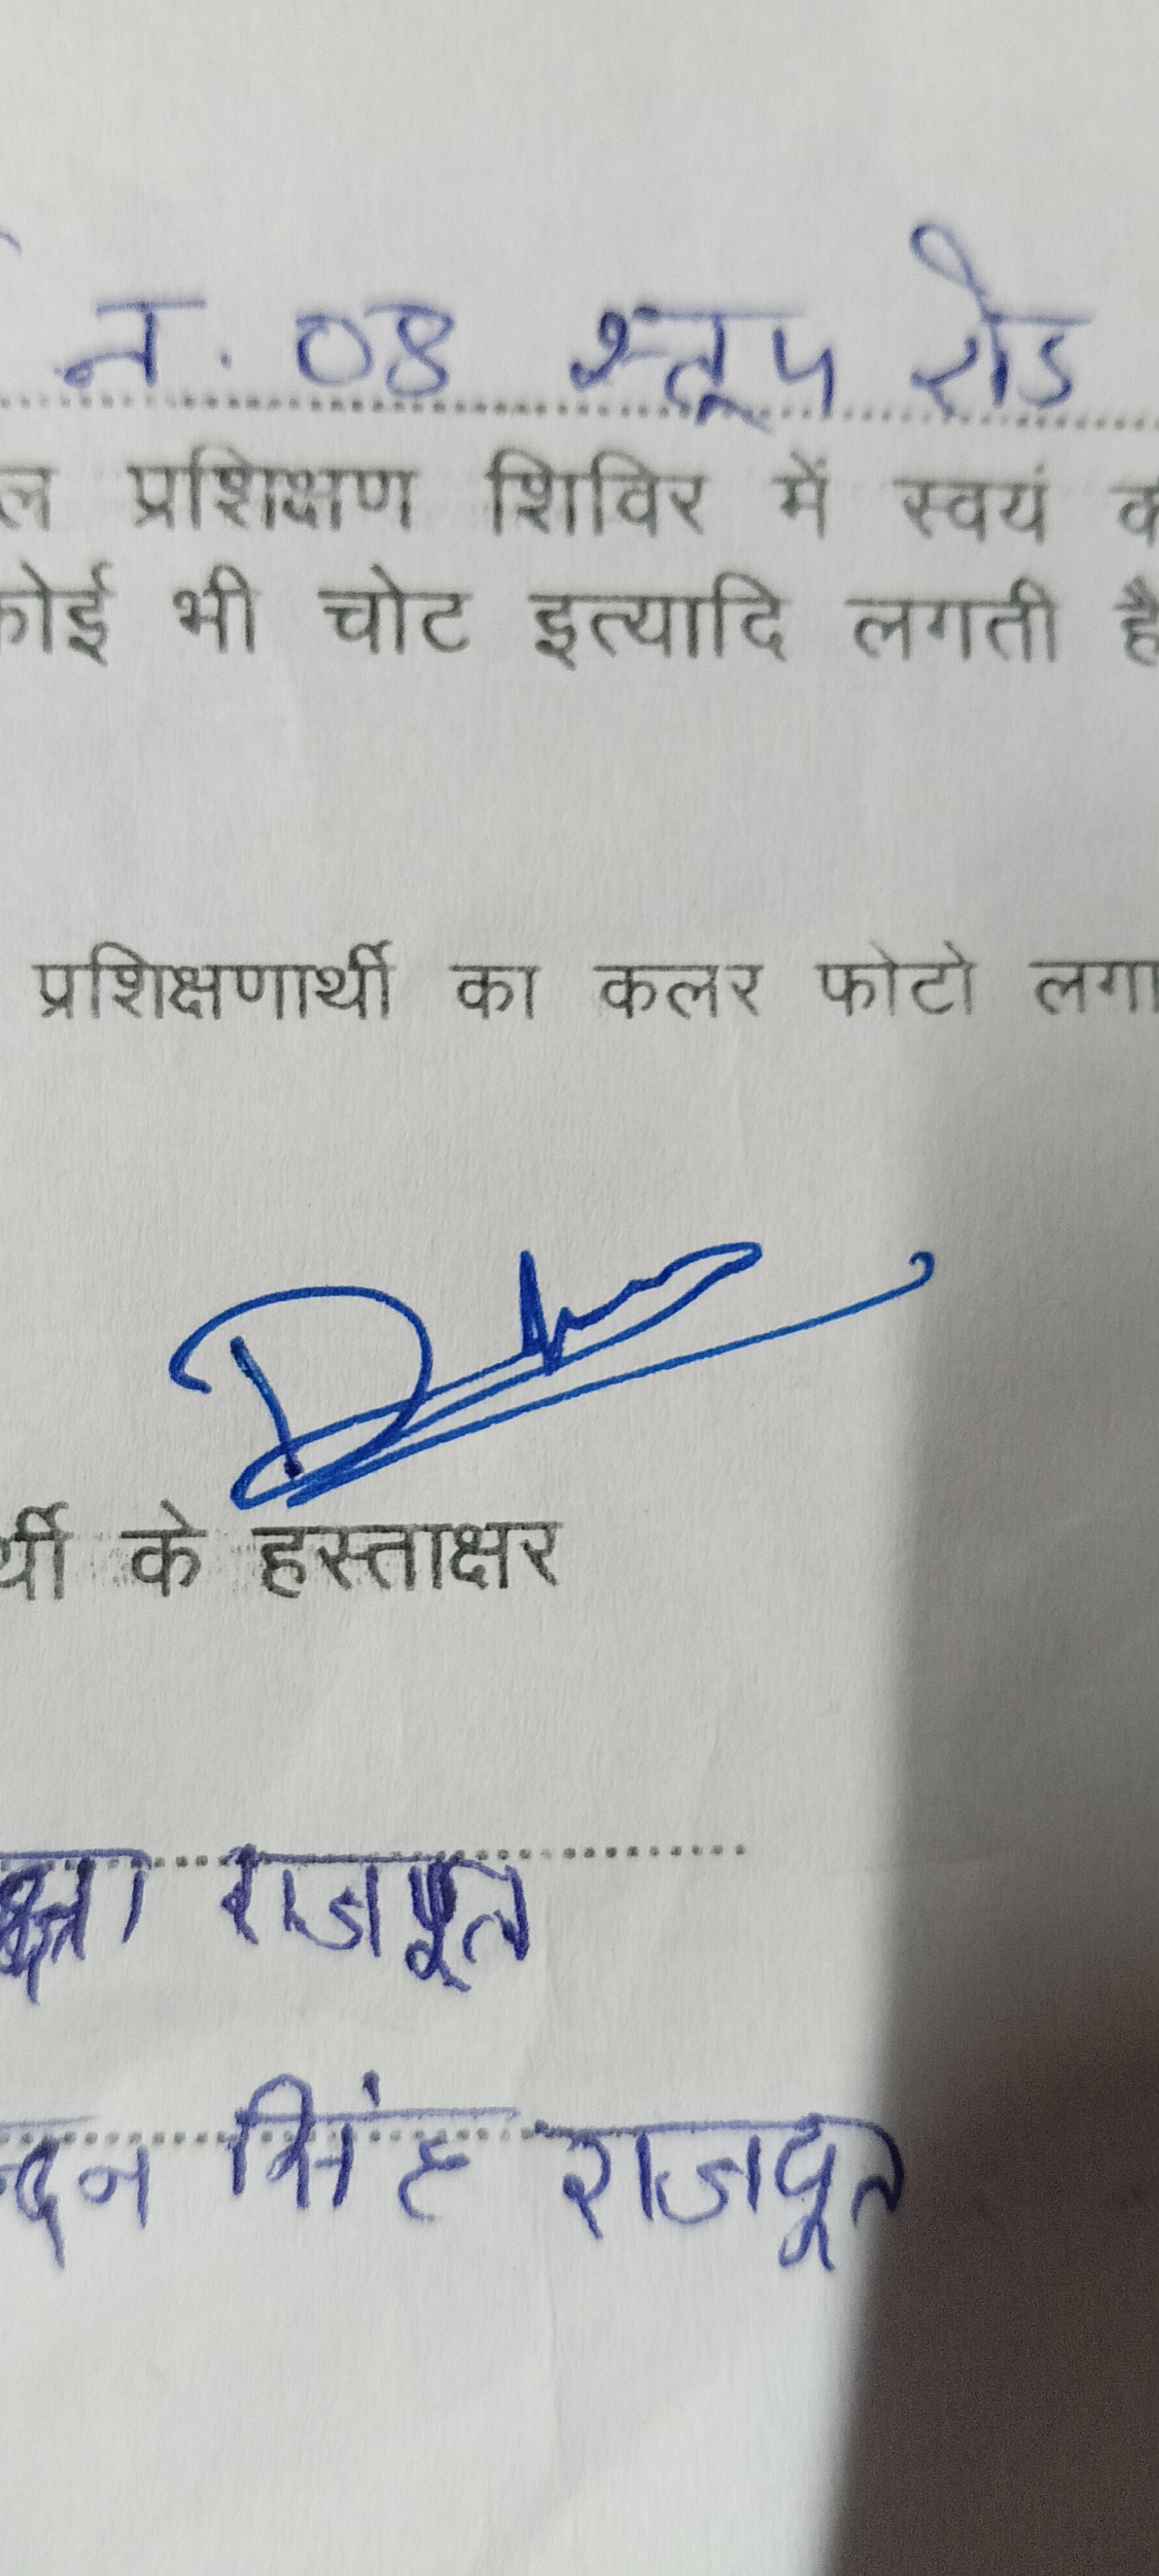 न. 08 स्तूप रोड
ल प्रशिक्षण शिविर में स्वयं क
कोई भी चोट इत्यादि लगती है
प्रशिक्षणार्थी का कलर फोटो लगा
र्थी के हस्ताक्षर
राजपूत
न्दन सिंह राजपूत